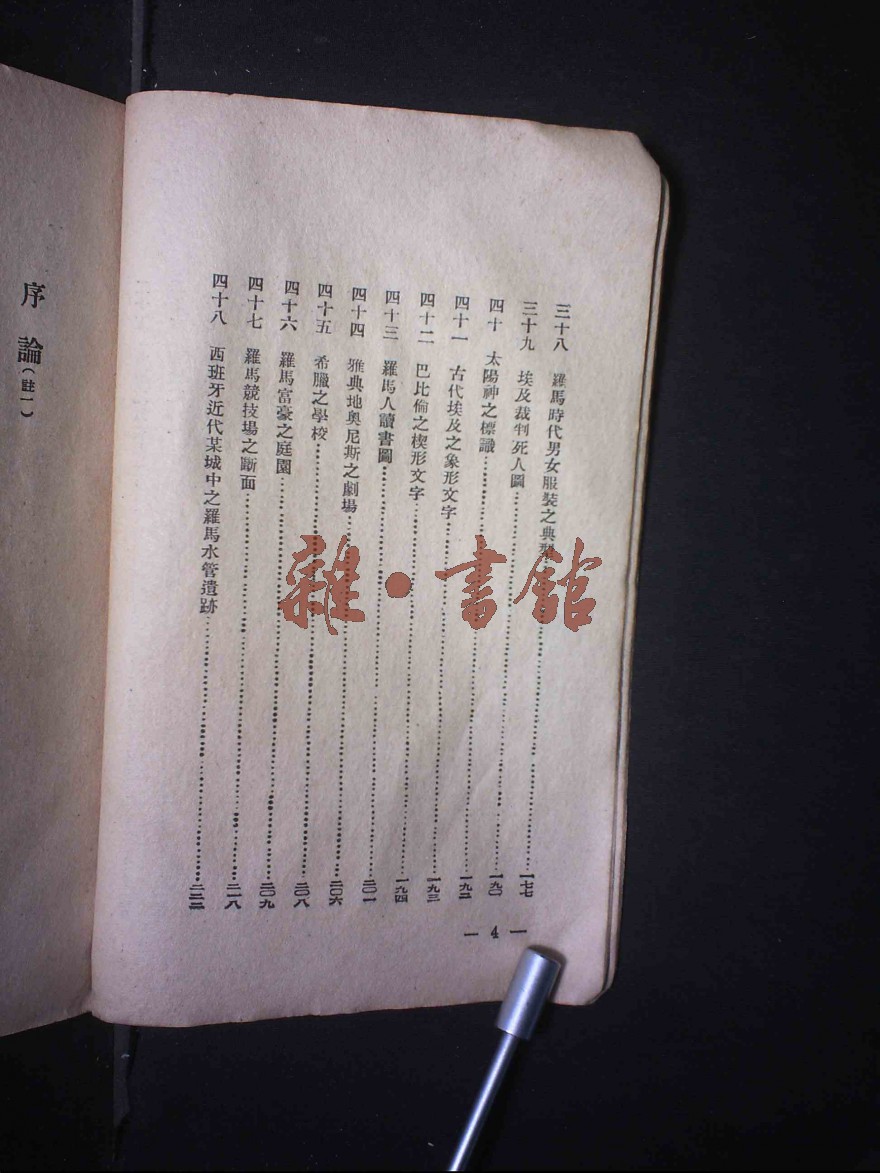 三十八 羅馬時代男女服裝之典型……一七七
三十九 埃及裁判死人圖……一九〇
四十 太陽神之標識……一九二
四十一 古代埃及之象形文字……一九三
四十二 巴比倫之楔形文字……一九四
四十三 羅馬人讀書圖……二〇一
四十四 雅典地奧尼斯之劇場……二〇六
四十五 希臘之學校……二〇八
四十六 羅馬富豪之庭園……二〇九
四十七 羅馬競技場之斷面……二一八
四十八 西班牙近代某城中之羅馬水管遺跡……
— 4 —
序論(註一)
雜·書館